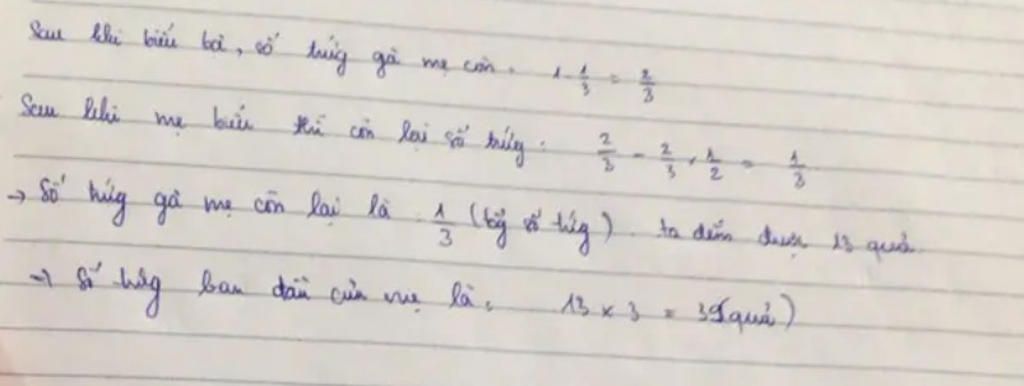 Sau khi biếu bà, số trứng gà mẹ còn. 1 - 1/3 = 2/3
Sau khi mẹ biếu thì còn lại số trứng: 2/3 - 2/3 . 1/2 = 1/3
→ Số trứng gà mẹ còn lại là 1/3 (tổng số trứng). ta đếm được 13 quả.
→ Số trứng ban đầu của mẹ là: 13 x 3 = 39(quả)